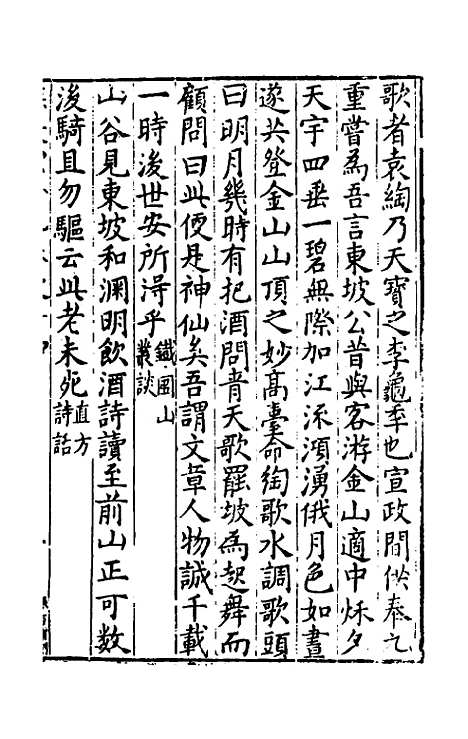 歌者袁綯乃天寶之李龜年也宣政間供奉九
重嘗為吾言東坡公昔與客游金山適中秋夕
天宇四垂一碧無際加江流澒湧俄月色如晝
遂共登金山山頂之妙高臺命綯歌水調歌頭
曰明月幾時有把酒問青天歌罷坡為起舞而
顧問曰此便是神仙矣吾謂文章人物誠千載
一時後世安所得乎鐵围山叢談
山谷見東坡和淵明飲酒詩讀至前山正可數
後騎且勿驅云此老未死直方詩話